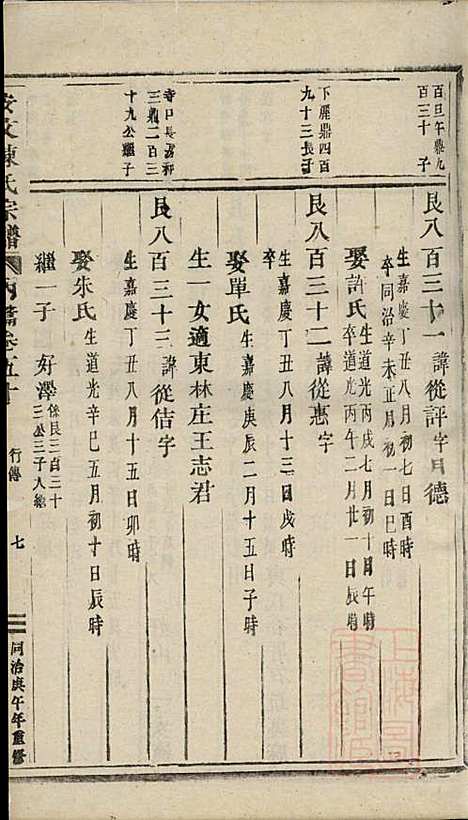 百旦午鼎九
百三十子
艮八百三十一諱從評字曰德
生嘉慶丁丑八月初七日酉時
卒同治辛未正月初一日巳時
娶許氏生道光丙戌七月初十日午時
卒道光丙午二月廿一日辰時
下麗鼎四百
九十三長子
艮八百三十二諱從惠字
生嘉慶丁丑八月十三日戌時
娶單氏生嘉慶庚辰二月十五日子時
生一女適東林庄王志君
寺口長
三鼎二百三
十九公繼子
艮八百三十三諱從佶字
生嘉慶丁丑八月十五日卯時
娶朱氏生道光辛巳五月初十日辰時
繼一子 好澤係艮三百三十
三公三子入繼
陳氏宗譜
行傳
七
同治庚午年重修